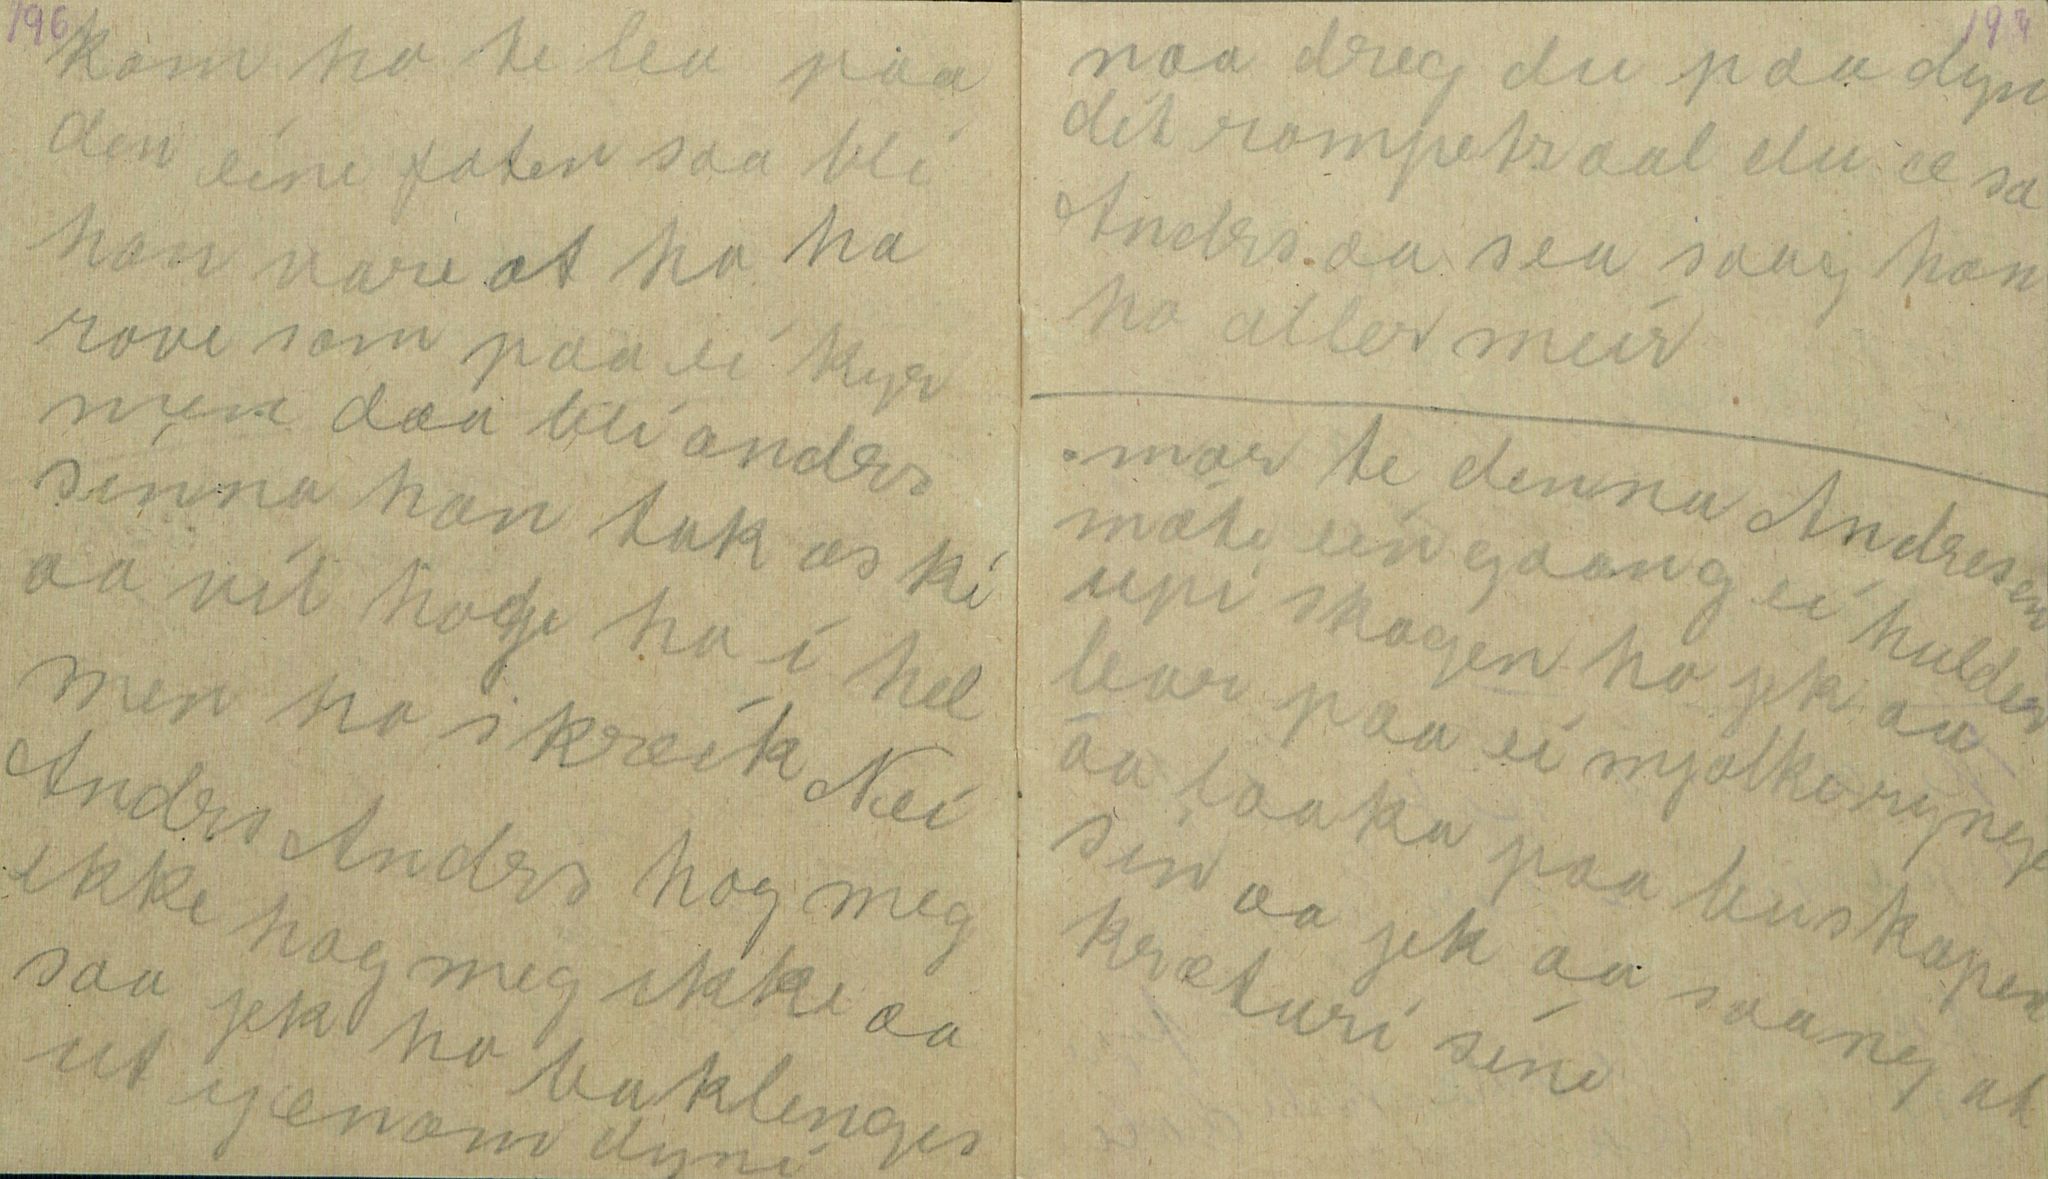 196
kom ho te lea paa
den eine foten saa blei
han vare at ho ha
rove som paa ei kyr
men daa blei anders
sinna han tok øs ki
aa vil hogge ho i hel
men ho skreik Nei
Anders Anders hog meg
ikke hog meg ikke aa
saa jek ho baklenges
ut gjenom dyni
197
naa dreg du paa dyn
dit rompetraal du æ sa
Anders aa sea saag han
ho aller meir
mor te denna Andresen
møte ein gaang ei hulder
upi skogen ho jek aa
bar paa ei mjølkeryngje
aa laaka paa buskapen
sin aa jek aa saang at
kræturi sine